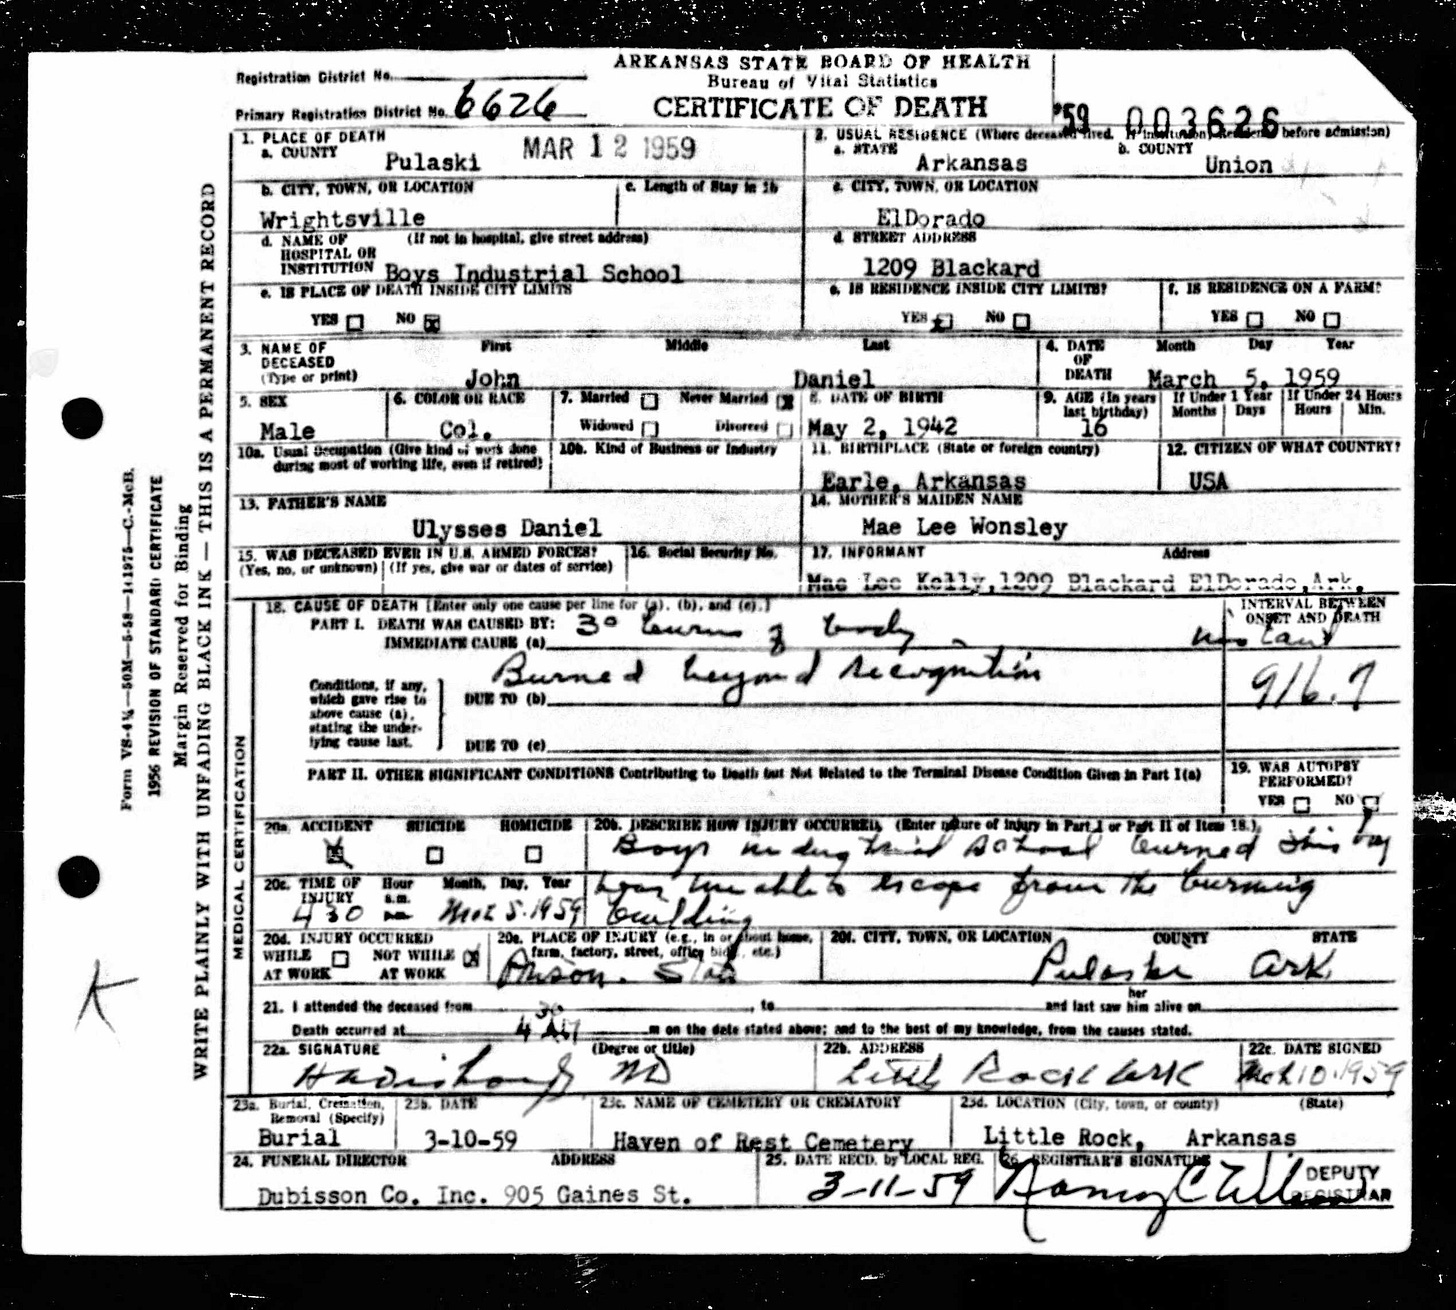 ARKANSAS STATE BOARD OF HEALTH
Bureau of Vital Statistics
CERTIFICATE OF DEATH
Registration District No.
Primary Registration District No. 6626
'59 003626
MAR 12 1959
1. PLACE OF DEATH
a. COUNTY Pulaski
2. USUAL RESIDENCE (Where deceased lived. If institution, residence before admission)
a. STATE Arkansas b. COUNTY Union
b. CITY, TOWN, OR LOCATION Wrightsville
c. Length of Stay in 1b
c. CITY, TOWN, OR LOCATION
ElDorado
d. NAME OF HOSPITAL OR INSTITUTION (If not in hospital, give street address)
Boys Industrial School
d. STREET ADDRESS
1209 Blackard
e. IS PLACE OF DEATH INSIDE CITY LIMITS?
YES NO
e. IS RESIDENCE INSIDE CITY LIMITS?
YES NO
f. IS RESIDENCE ON A FARM?
YES NO
3. NAME OF DECEASED (Type or print)
First Middle Last
John Daniel
4. DATE OF DEATH Month Day Year
March 5, 1959
5. SEX
Male
6. COLOR OR RACE
Col.
7. Married Never Married
Widowed Divorced
8. DATE OF BIRTH
May 2, 1942
9. AGE (In years last birthday)
16
If Under 1 Year If Under 24 Hours
Months Days Hours Min.
10a. Usual Occupation (Give kind of work done during most of working life, even if retired)
10b. Kind of Business or Industry
11. BIRTHPLACE (State or foreign country)
Earle, Arkansas
12. CITIZEN OF WHAT COUNTRY?
USA
13. FATHER'S NAME
Ulysses Daniel
14. MOTHER'S MAIDEN NAME
Mae Lee Wonsley
15. WAS DECEASED EVER IN U.S. ARMED FORCES?
(Yes, no, or unknown) (If yes, give war or dates of service)
16. Social Security No.
17. INFORMANT Address
Mae Lee Kelly, 1209 Blackard ElDorado, Ark.
18. CAUSE OF DEATH [Enter only one cause per line for (a), (b), and (c).]
INTERVAL BETWEEN ONSET AND DEATH
PART I. DEATH WAS CAUSED BY:
IMMEDIATE CAUSE (a) 3° burns of body
Burned beyond recognition
916.7
Conditions, if any, which gave rise to above cause (a), stating the underlying cause last.
DUE TO (b)
DUE TO (c)
PART II. OTHER SIGNIFICANT CONDITIONS Contributing to Death but Not Related to the Terminal Disease Condition Given in Part I(a)
19. WAS AUTOPSY PERFORMED?
YES NO
20a. ACCIDENT SUICIDE HOMICIDE
20b. DESCRIBE HOW INJURY OCCURRED. (Enter nature of injury in Part I or Part II of Item 18.)
Boys industrial school burned this boy
was unable to escape from the burning
building
20c. TIME OF INJURY Hour a.m. p.m. Month, Day, Year
430 Mar 5-1959
20d. INJURY OCCURRED
WHILE AT WORK NOT WHILE AT WORK
20e. PLACE OF INJURY (e.g., in or about home, farm, factory, street, office bldg., etc.)
Prison. State
20f. CITY, TOWN, OR LOCATION COUNTY STATE
Pulaski Ark.
21. I attended the deceased from , to and last saw her him alive on
Death occurred at 4 30 AM m on the date stated above; and to the best of my knowledge, from the causes stated.
22a. SIGNATURE (Degree or title)
MD
22b. ADDRESS
Little Rock Ark
22c. DATE SIGNED
Mch 10-1959
23a. Burial, Cremation, Removal (Specify)
Burial
23b. DATE
3-10-59
23c. NAME OF CEMETERY OR CREMATORY
Haven of Rest Cemetery
23d. LOCATION (City, town, or county) (State)
Little Rock, Arkansas
24. FUNERAL DIRECTOR ADDRESS
Dubisson Co. Inc. 905 Gaines St.
25. DATE RECD. by LOCAL REG.
3-11-59
26. REGISTRAR'S SIGNATURE
Nancy C Wilson
DEPUTY REGISTRAR
MEDICAL CERTIFICATION
WRITE PLAINLY WITH UNFADING BLACK INK — THIS IS A PERMANENT RECORD
Margin Reserved for Binding
1956 REVISION OF STANDARD CERTIFICATE
K